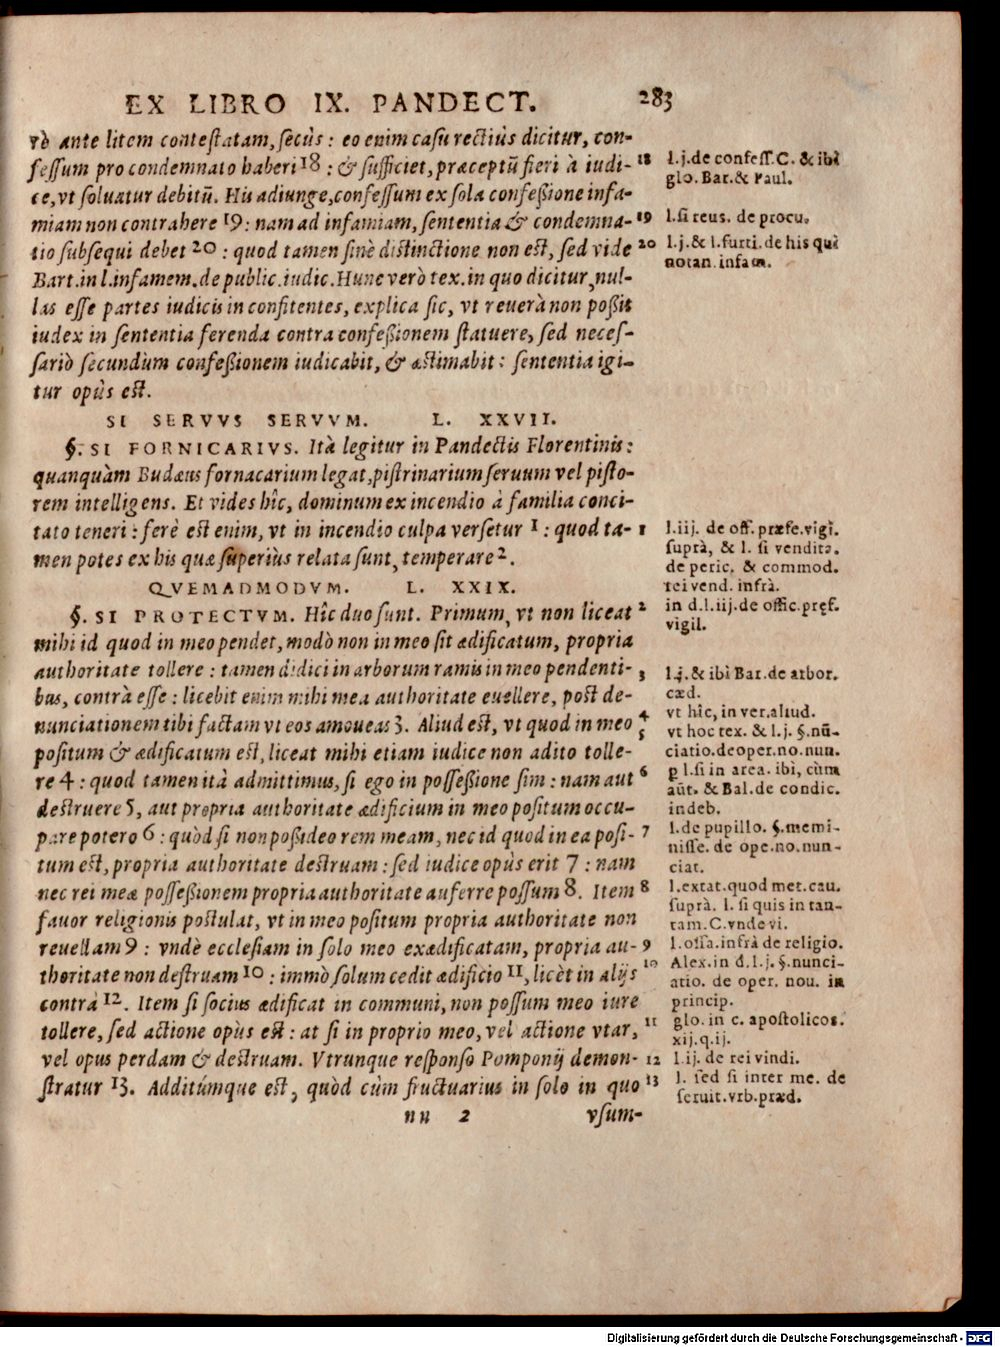 EX LIBRO IX. PANDECT. 283
rò ante litem contestatam, secùs : eo enim casu rectiùs dicitur, con-
fessum pro condemnato haberi 18 : & sufficiet, præceptũ fieri à iudi-
ce, vt soluatur debitũ. His adiunge, confessum ex sola confeßione infa-
miam non contrahere 19 : nam ad infamiam, sententia & condemna-
tio subsequi debet 20 : quod tamen sinè distinctione non est, sed vide
Bart. in l. infamem. de public. iudic. Hunc verò tex. in quo dicitur, nul-
las esse partes iudicis in confitentes, explica sic, vt reuerà non poßit
iudex in sententia ferenda contra confeßionem statuere, sed neces-
sariò secundùm confeßionem iudicabit, & æstimabit : sententia igi-
tur opùs est.
SI SERVVS SERVVM. L. XXVII.
§. SI FORNICARIVS. Ità legitur in Pandectis Florentinis :
quanquàm Budæus fornacarium legat, pistrinarium seruum vel pisto-
rem intelligens. Et vides hîc, dominum ex incendio à familia conci-
tato teneri : ferè est enim, vt in incendio culpa versetur 1 : quod ta-
men potes ex his quæ superiùs relata sunt, temperare 2.
QVEMADMODVM. L. XXIX.
§. SI PROTECTVM. Hîc duo sunt. Primum, vt non liceat
mihi id quod in meo pendet, modò non in meo sit ædificatum, propria
authoritate tollere : tamen didici in arborum ramis in meo pendenti-
bus, contrà esse : licebit enim mihi mea authoritate euellere, post de-
nunciationem tibi factam vt eos amoueas 3. Aliud est, vt quod in meo
positum & ædificatum est, liceat mihi etiam iudice non adito tolle-
re 4 : quod tamen ità admittimus, si ego in posseßione sim : nam aut
destruere 5, aut propria authoritate ædificium in meo positum occu-
pare potero 6 : quòd si non poßideo rem meam, nec id quod in ea posi-
tum est, propria authoritate destruam : sed iudice opùs erit 7 : nam
nec rei meæ posseßionem propria authoritate auferre possum 8. Item
fauor religionis postulat, vt in meo positum propria authoritate non
reuellam 9 : vndè ecclesiam in solo meo exædificatam, propria au-
thoritate non destruam 10 : immò solum cedit ædificio 11, licèt in alijs
contrà 12. Item si socius ædificat in communi, non possum meo iure
tollere, sed actione opùs est : at si in proprio meo, vel actione vtar,
vel opus perdam & destruam. Vtrunque responso Pomponij demon-
stratur 13. Additúmque est, quòd cùm fructuarius in solo in quo
nn 2 vsum-
18 l.j.de confess.C. & ibi
glo. Bar.& Paul.
19 l.si reus. de procu.
20 l.j.& l.furti.de his qui
notan.infam.
1 l.iij. de off. præfe.vigi.
suprà, & l. si vendita.
de peric. & commod.
rei vend. infrà.
2 in d.l.iij.de offic.pręf.
vigil.
3 l.j.& ibi Bar.de arbor.
cæd.
4 vt hîc, in ver.aliud.
5 vt hoc tex. & l.j. §.nũ-
ciatio.de oper.no.nun.
6 p l.si in area. ibi, cùm
aũt. & Bal.de condic.
indeb.
7 l.de pupillo. §.memi-
nisse. de ope.no.nun-
ciat.
8 l.extat.quod met.cau.
suprà. l. si quis in tan-
tam.C.vnde vi.
9 l.ossa.infrà de religio.
10 Alex.in d.l.j.§.nunci-
atio. de oper. nou. in
princip.
11 glo. in c. apostolicos.
xij.q.ij.
12 l.ij. de rei vindi.
13 l. sed si inter me. de
seruit.vrb.præd.
Digitalisierung gefördert durch die Deutsche Forschungsgemeinschaft - DFG